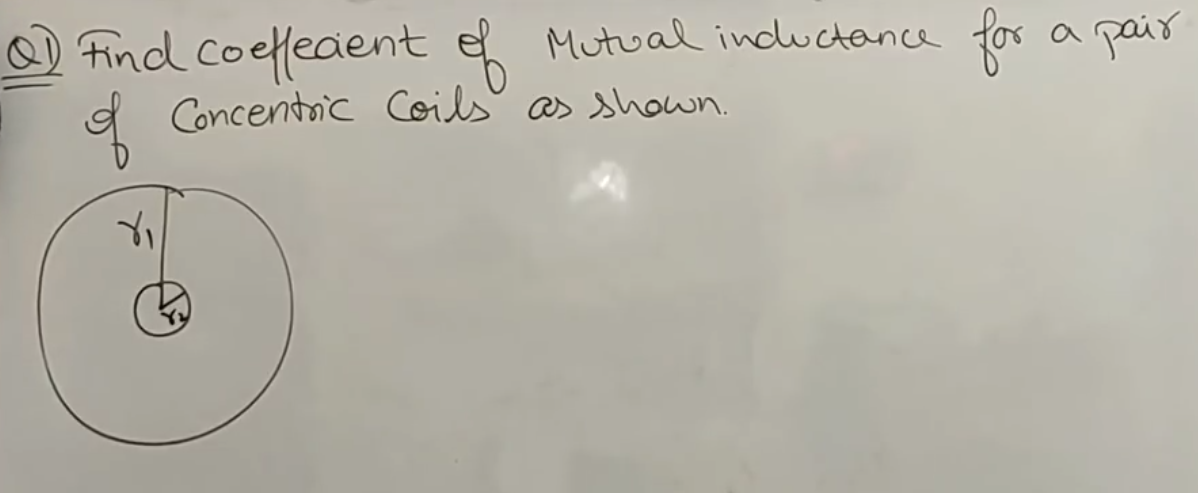 Q1) Find coeffecient of Mutual inductance for a pair
of Concentric Coils as shown.
r1
r2